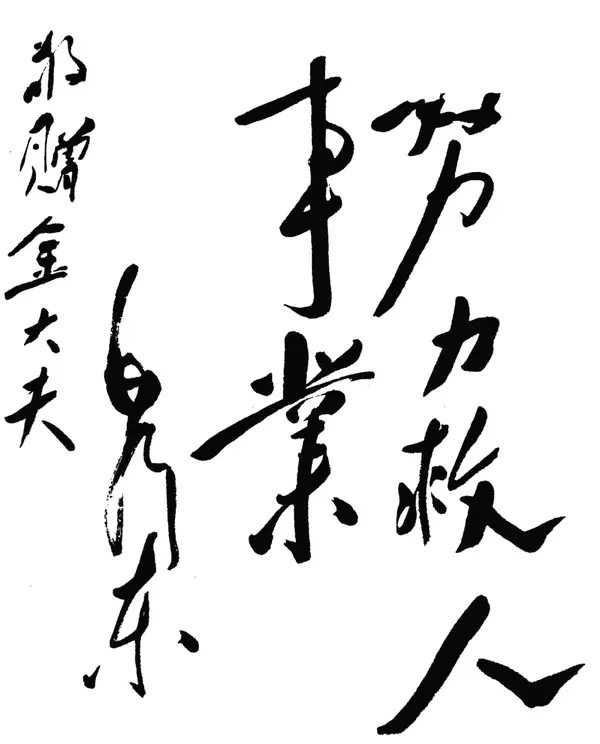 努力救人
事業
毛澤東
敬贈金大夫